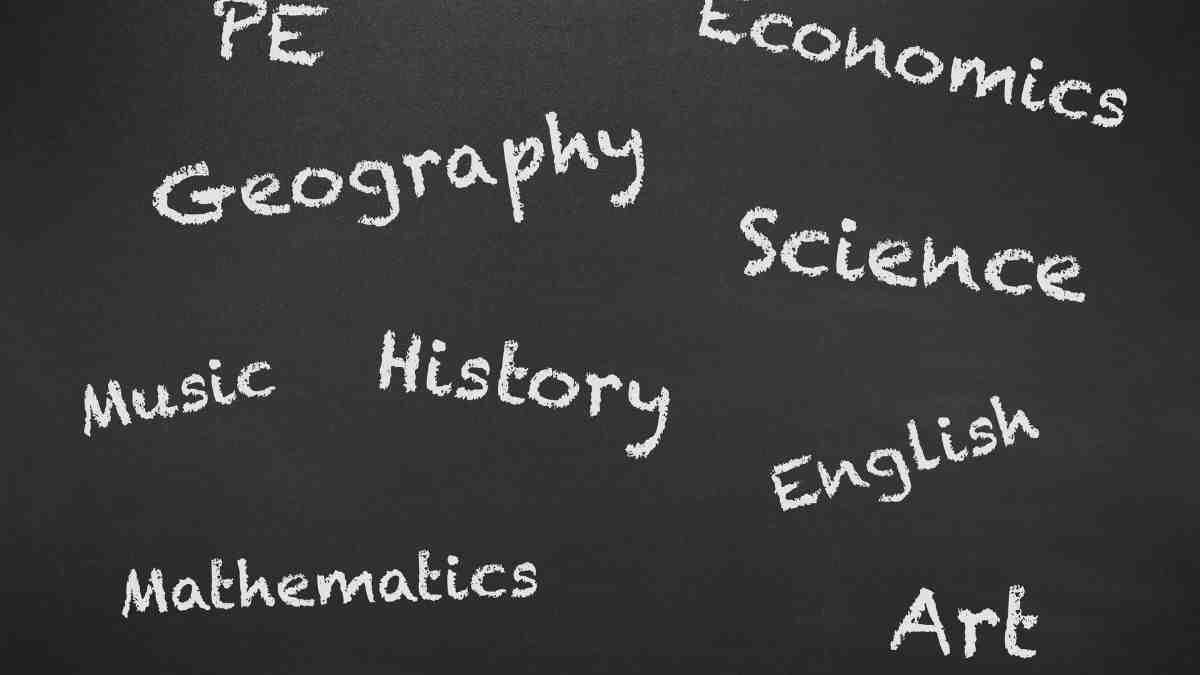 PE
Economics
Geography
Science
Music
History
English
Mathematics
Art